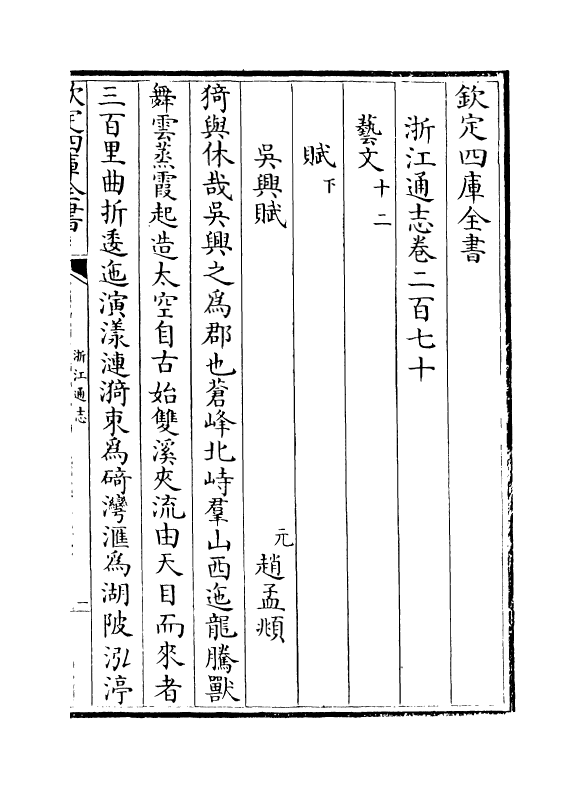 欽定四庫全書
浙江通志卷二百七十
藝文十二
賦下
吳興賦 元 趙孟頫
猗與休哉吳興之為郡也蒼峰北峙羣山西迤龍騰獸
舞雲蒸霞起造太空自古始雙溪夾流由天目而來者
三百里曲折逶迤演漾漣漪束為碕灣滙為湖陂泓渟
欽定四庫全書
浙江通志